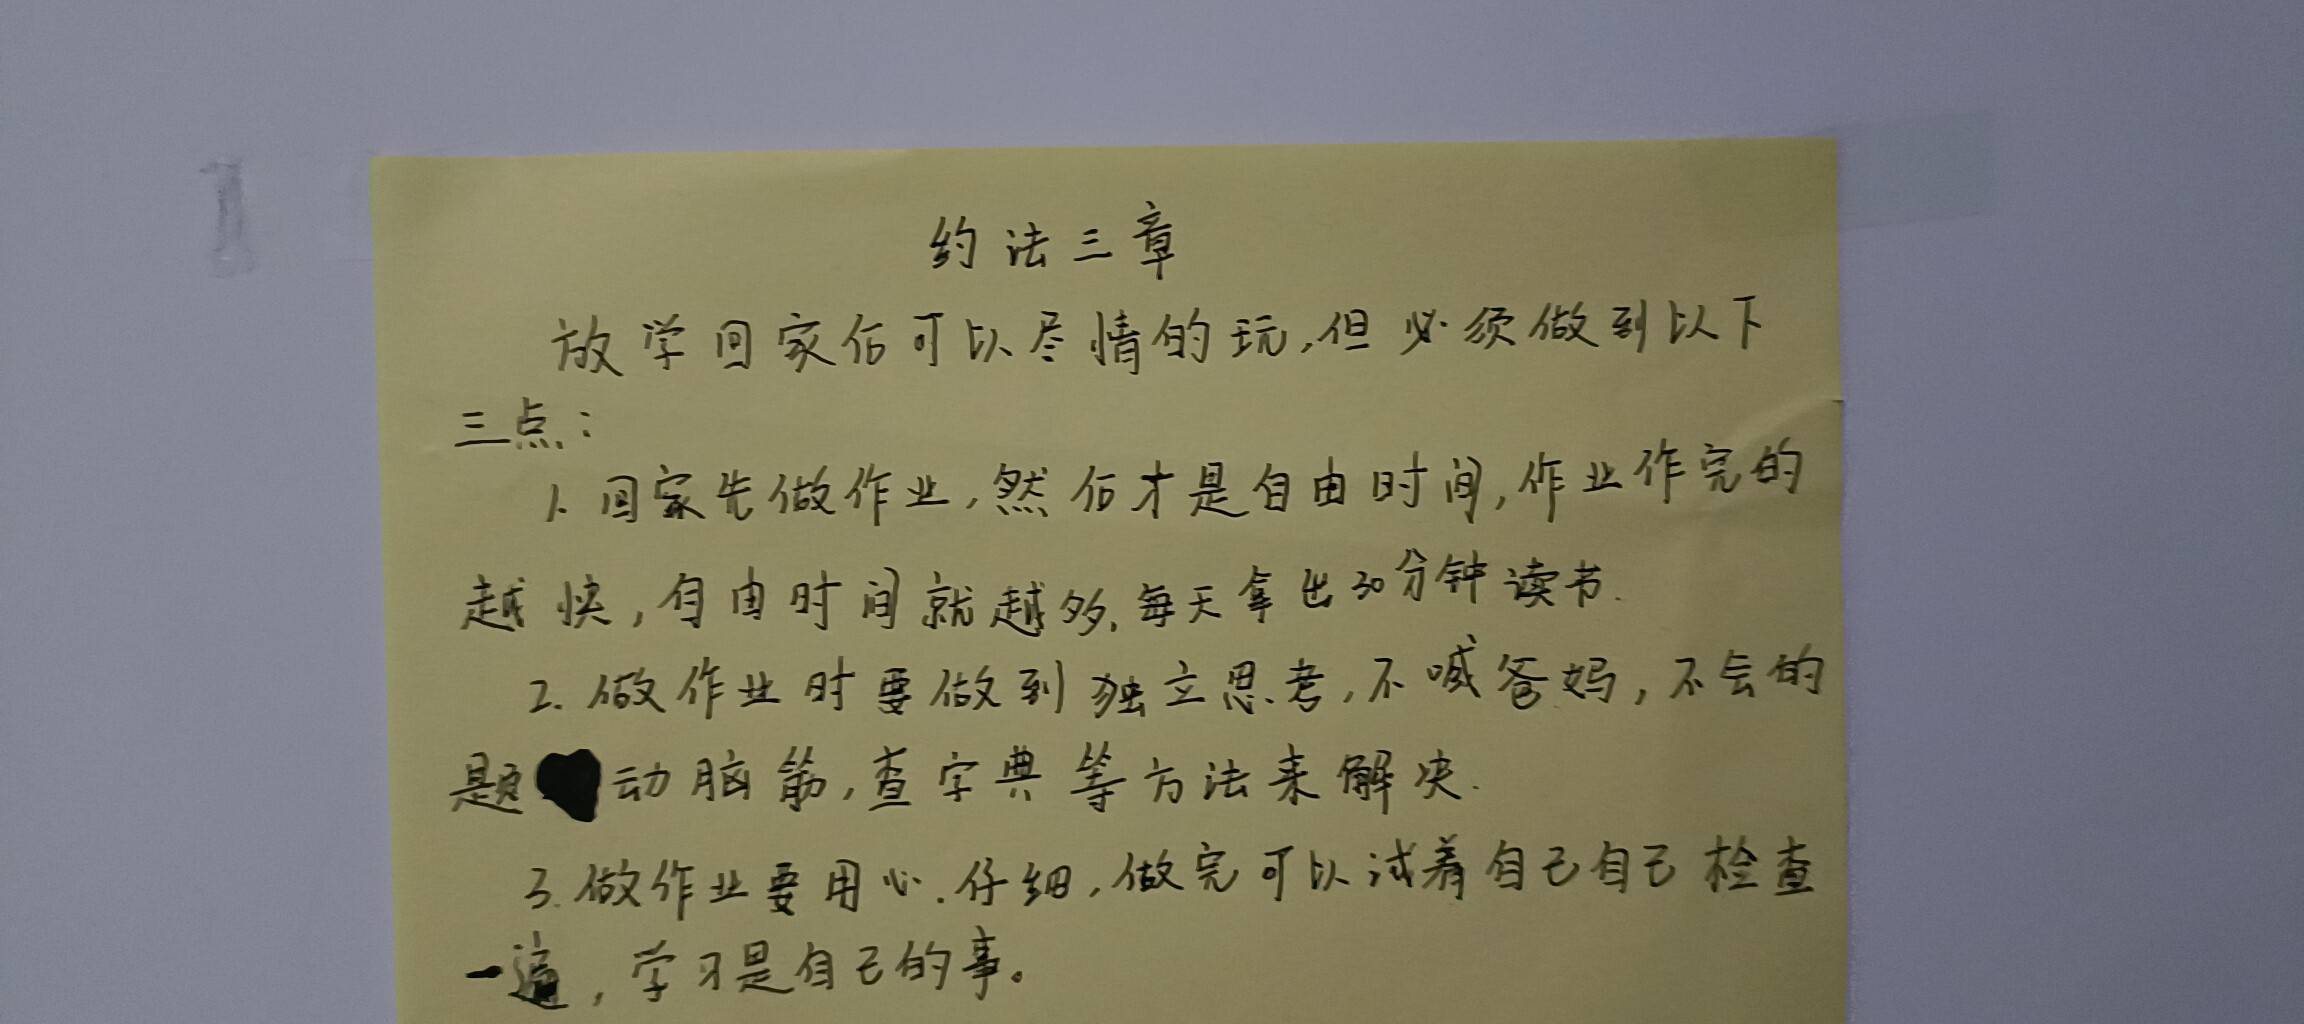 约法三章
放学回家后可以尽情的玩,但必须做到以下
三点:
1. 回家先做作业,然后才是自由时间,作业作完的
越快,自由时间就越多,每天拿出30分钟读书.
2. 做作业时要做到独立思考,不喊爸妈,不会的
题动脑筋,查字典等方法来解决.
3. 做作业要用心.仔细,做完可以试着自己自己检查
一遍,学习是自己的事。